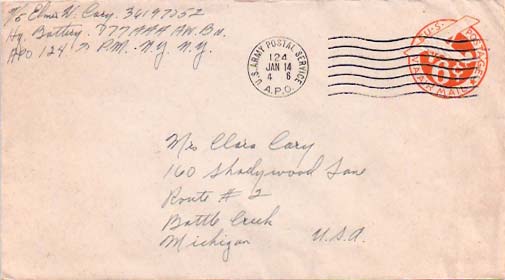 T/5 Elmer W. Cary. 36197252
Hq. Battery. 777 AAA AW. Bn.
APO 124 % P.M. N.Y. N.Y.
U.S. ARMY POSTAL SERVICE
124
JAN 14
4 6
A.P.O.
U.S. POSTAGE
VIA AIR MAIL
Mrs Clara Cary
160 Shadywood Lane
Route # 2
Battle Creek
Michigan U.S.A.